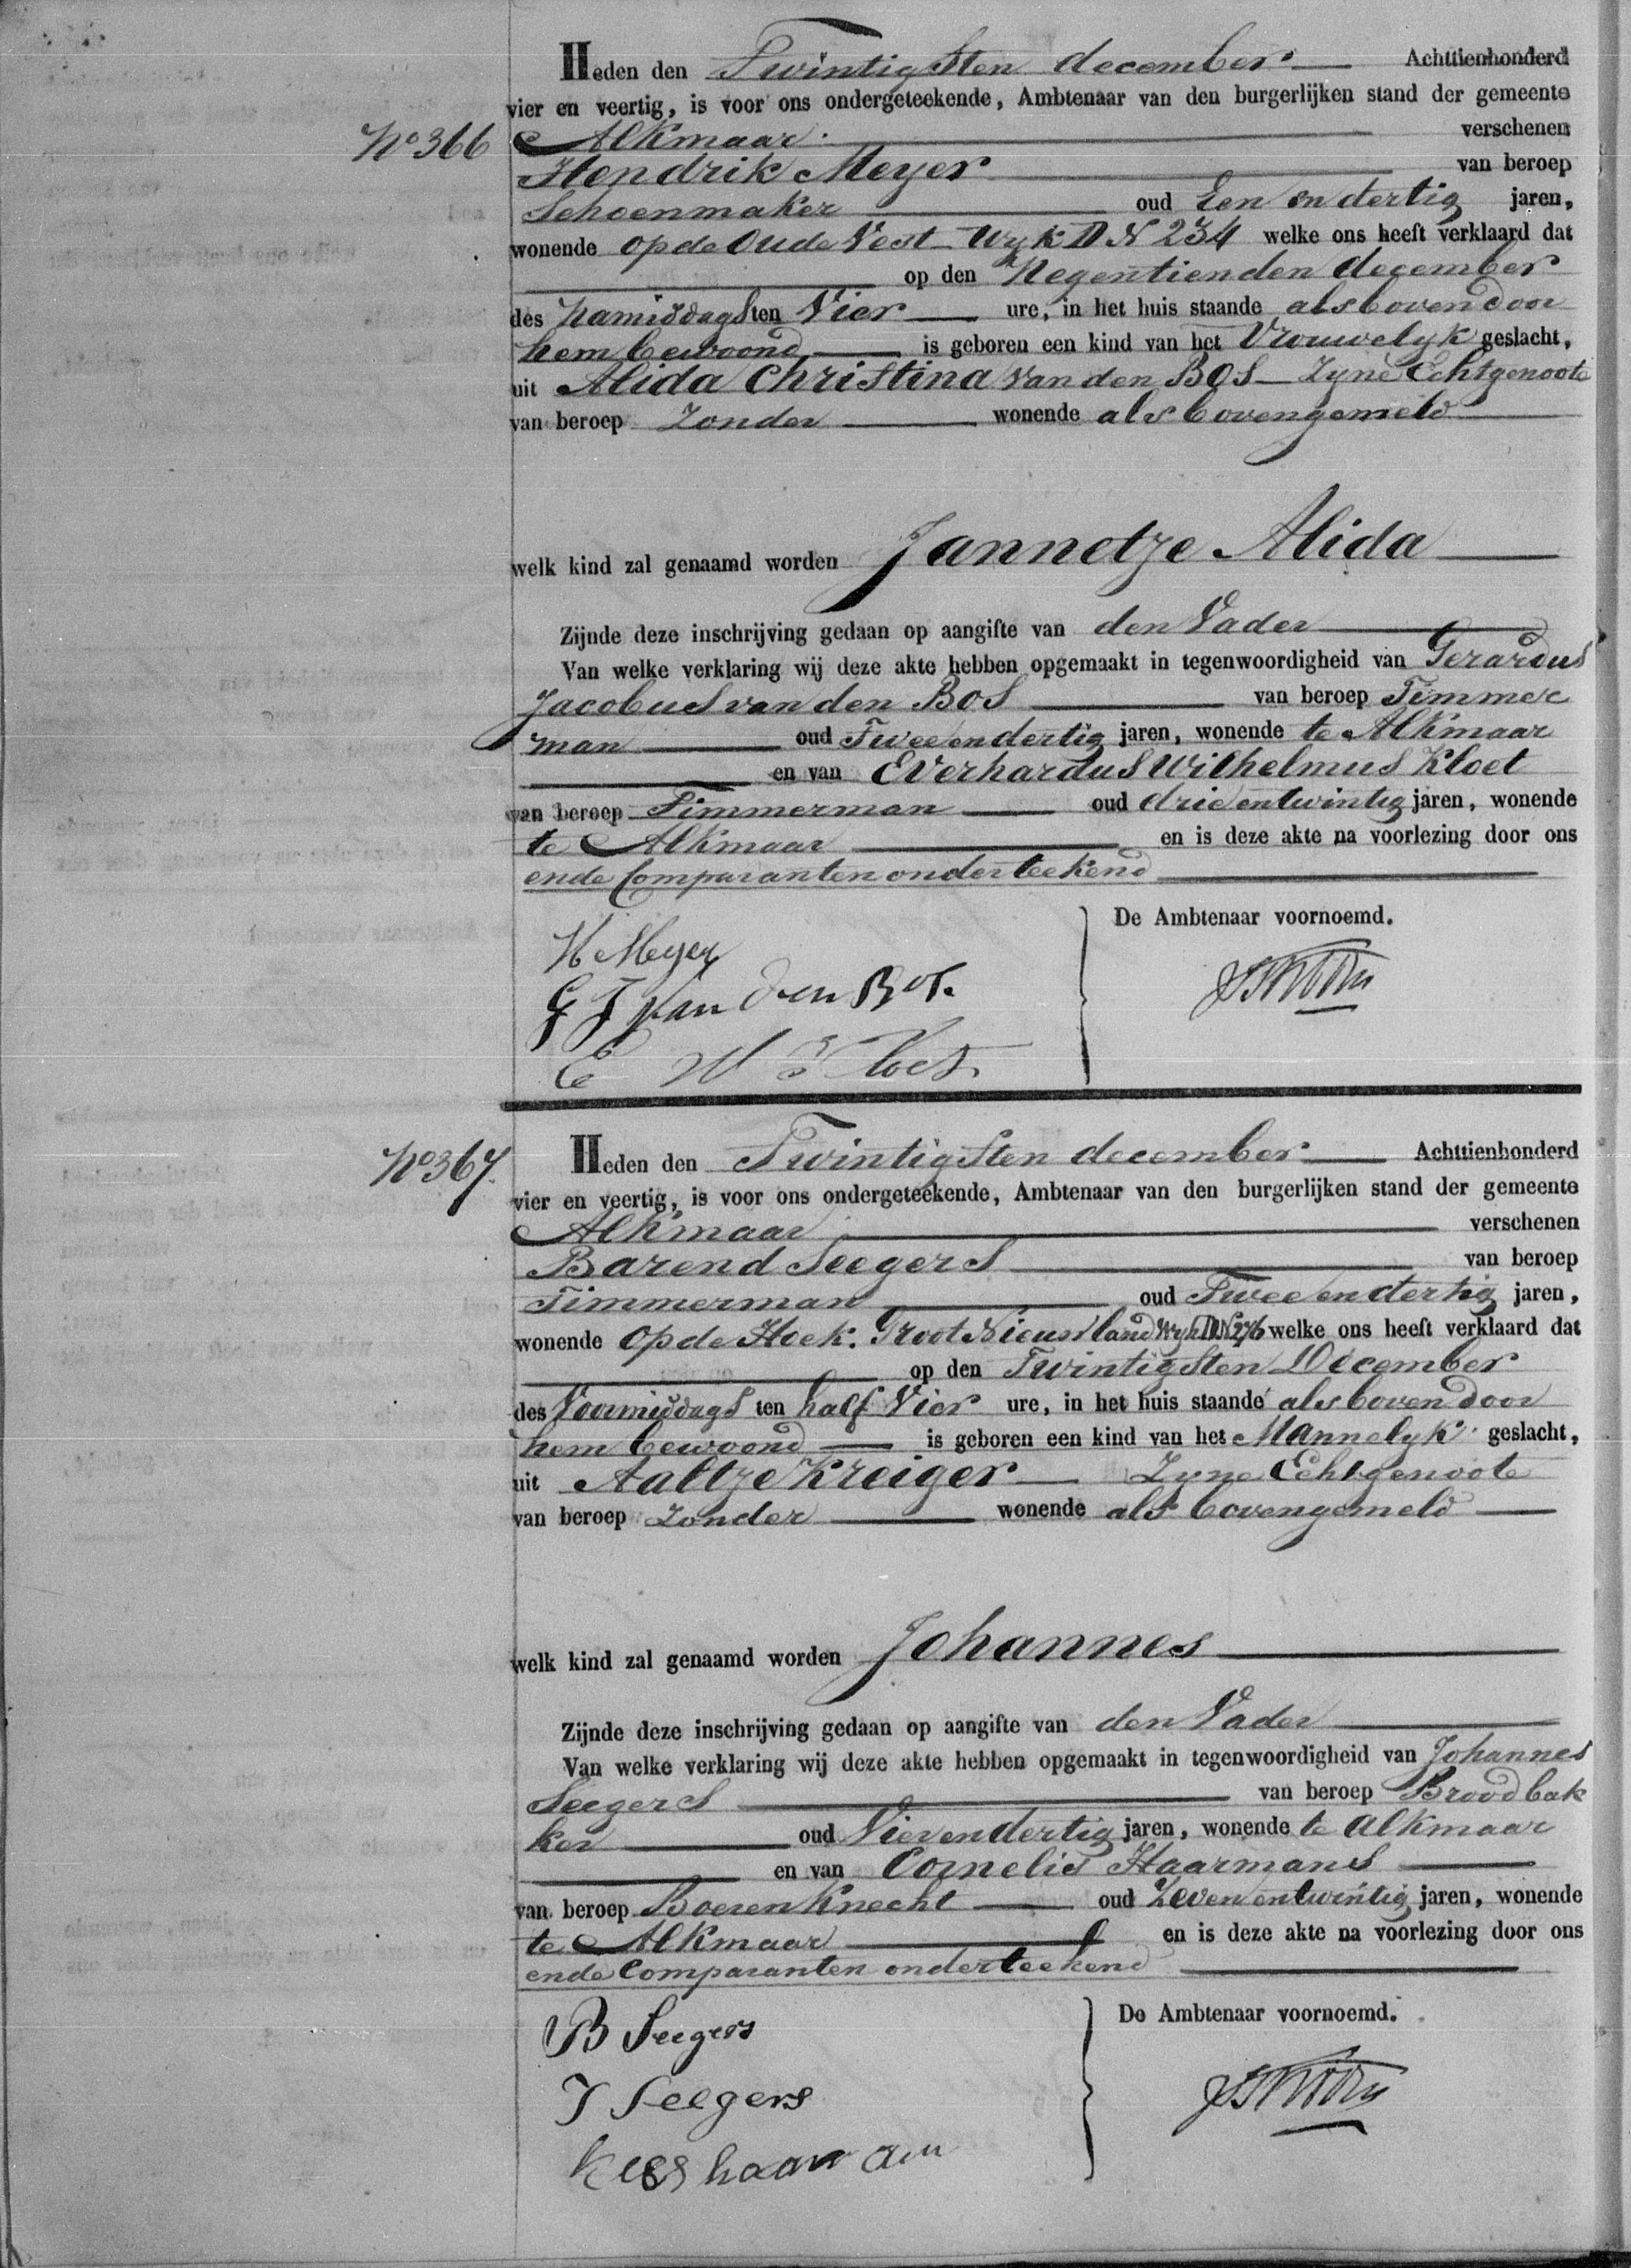 Heden den Twintigsten december Achttienhonderd
vier en veertig, is voor ons ondergeteekende, Ambtenaar van den burgerlijken stand der gemeente
No 366 Alkmaar verschenen
Hendrik Meyer van beroep
Schoenmaker oud Een en dertig jaren,
wonende op de Oude Vest Wyk D N 234 welke ons heeft verklaard dat
op den Negentienden december
des Namiddags ten Vier ure, in het huis staande als boven door
hem bewoond is geboren een kind van het Vrouwelyk geslacht,
uit Alida Christina van den Bos Zyne Echtgenoote
van beroep Zonder wonende als bovengemeld
welk kind zal genaamd worden Jannetze Alida
Zijnde deze inschrijving gedaan op aangifte van den Vader
Van welke verklaring wij deze akte hebben opgemaakt in tegenwoordigheid van Gerardus
Jacobus van den Bos van beroep Timmer
man oud Twee en dertig jaren, wonende te Alkmaar
en van Everhardus Wilhelmus Kloet
van beroep Timmerman oud drie en twintig jaren, wonende
te Alkmaar en is deze akte na voorlezing door ons
ende Comparanten onderteekend
De Ambtenaar voornoemd.
H Meyer
G J van den Bos.
E W Kloet
No 367. Heden den Twintigsten december Achttienhonderd
vier en veertig, is voor ons ondergeteekende, Ambtenaar van den burgerlijken stand der gemeente
Alkmaar verschenen
Barend Seegers van beroep
Timmerman oud Twee en dertig jaren,
wonende op de Hoek. Groot Nieuwland Wyk D N 276 welke ons heeft verklaard dat
op den Twintigsten December
des Voormiddags ten half Vier ure, in het huis staande als boven door
hem bewoond is geboren een kind van het Mannelyk geslacht,
uit Aaltze Kreiger Zyne Echtgenoote
van beroep Zonder wonende als bovengemeld
welk kind zal genaamd worden Johannes
Zijnde deze inschrijving gedaan op aangifte van den Vader
Van welke verklaring wij deze akte hebben opgemaakt in tegenwoordigheid van Johannes
Seegers van beroep Broodbak
ker oud Vier en dertig jaren, wonende te Alkmaar
en van Cornelis Haarmans
van beroep Boeren Knecht oud Zeven en twintig jaren, wonende
te Alkmaar en is deze akte na voorlezing door ons
ende Comparanten onderteekend
De Ambtenaar voornoemd.
B Seegers
J Seegers